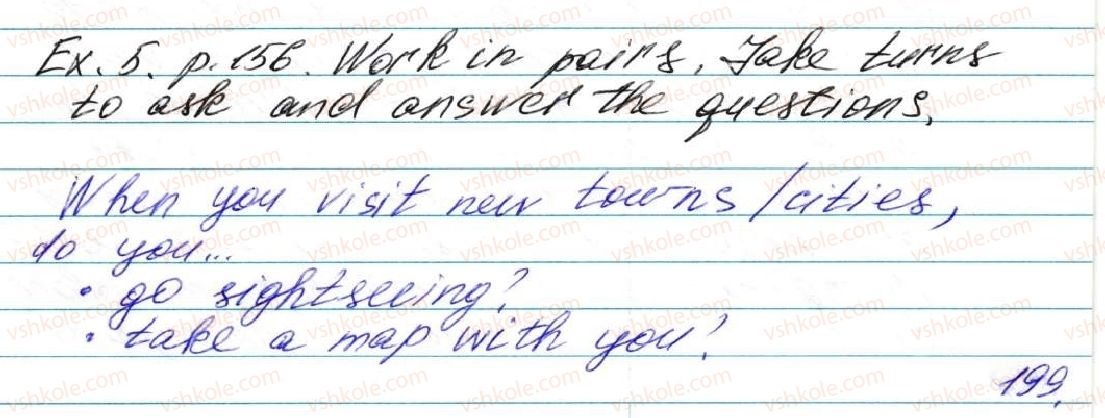 Ex. 5. p. 156. Work in pairs. Take turns
to ask and answer the questions.
When you visit new towns/cities,
do you...
• go sightseeing?
• take a map with you?
199.